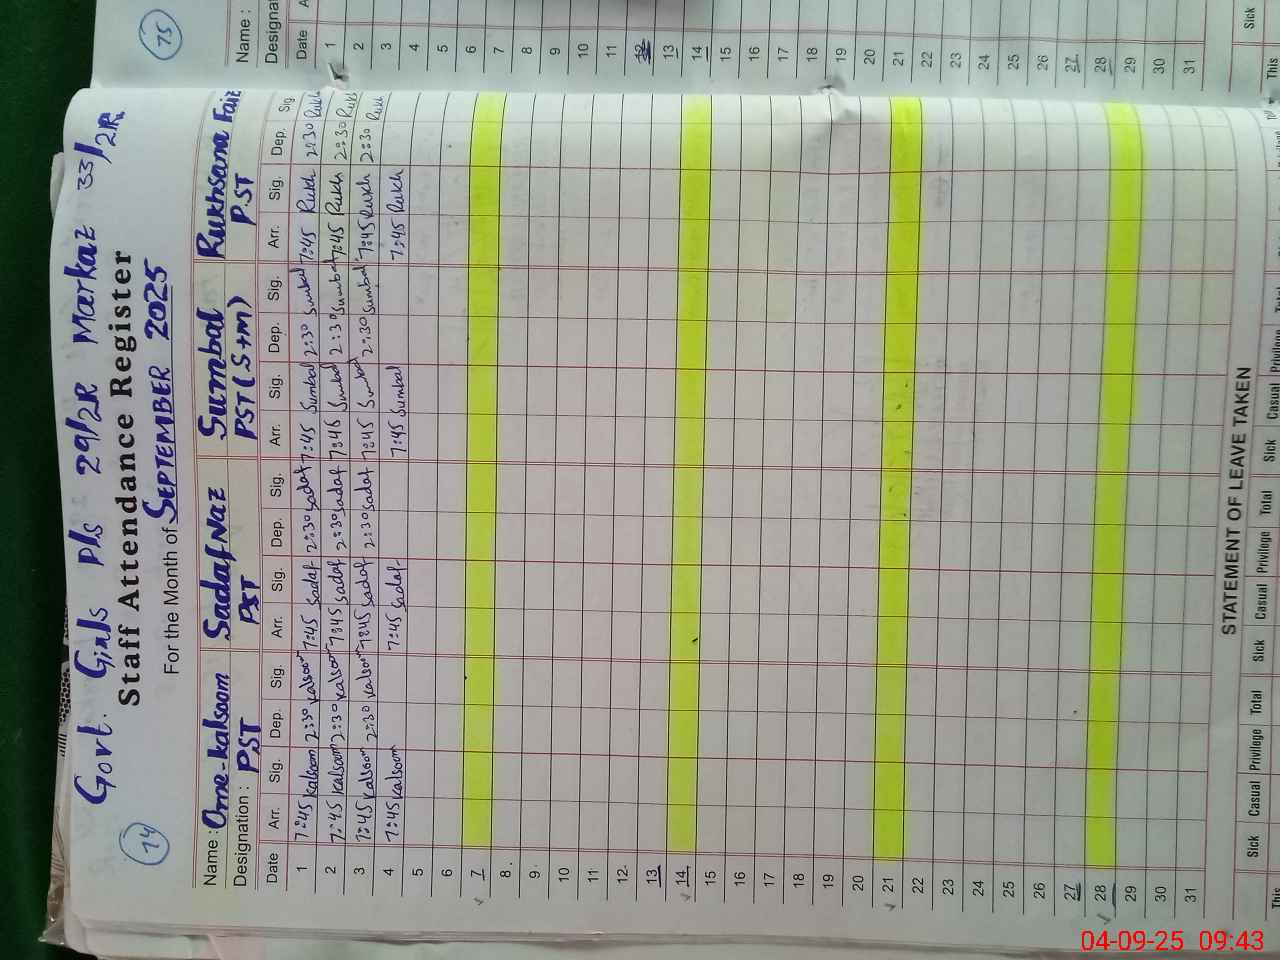 74
Govt. Girls P/s 29/2R Markaz 33/2R
Staff Attendance Register
For the Month of SEPTEMBER 2025
Name : Ome-kalsoom Sadaf Naz Sumbal Rukhsana Faiz
Designation : PST PST PST (S+M) P.ST
Date Arr. Sig. Dep. Sig. Arr. Sig. Dep. Sig. Arr. Sig. Dep. Sig. Arr. Sig. Dep. Sig.
1 7:45 Kalsoom 2:30 Kalsoom 7:45 Sadaf 2:30 Sadaf 7:45 Sumbal 2:30 Sumbal 7:45 Rukh 2:30 Rukh
2 7:45 Kalsoom 2:30 Kalsoom 7:45 Sadaf 2:30 Sadaf 7:45 Sumbal 2:30 Sumbal 7:45 Rukh 2:30 Rukh
3 7:45 Kalsoom 2:30 Kalsoom 7:45 Sadaf 2:30 Sadaf 7:45 Sumbal 2:30 Sumbal 7:45 Rukh 2:30 Rukh
4 7:45 Kalsoom 7:45 Sadaf 7:45 Sumbal 7:45 Rukh
5
6
7
8
9
10
11
12
13
14
15
16
17
18
19
20
21
22
23
24
25
26
27
28
29
30
31
STATEMENT OF LEAVE TAKEN
Sick Casual Privilege Total Sick Casual Privilege Total Sick Casual Privilege
This
75
Name :
Designat
Date A
1
2
3
4
5
6
7
8
9
10
11
12
13
14
15
16
17
18
19
20
21
22
23
24
25
26
27
28
29
30
31
Sick
This
04-09-25 09:43